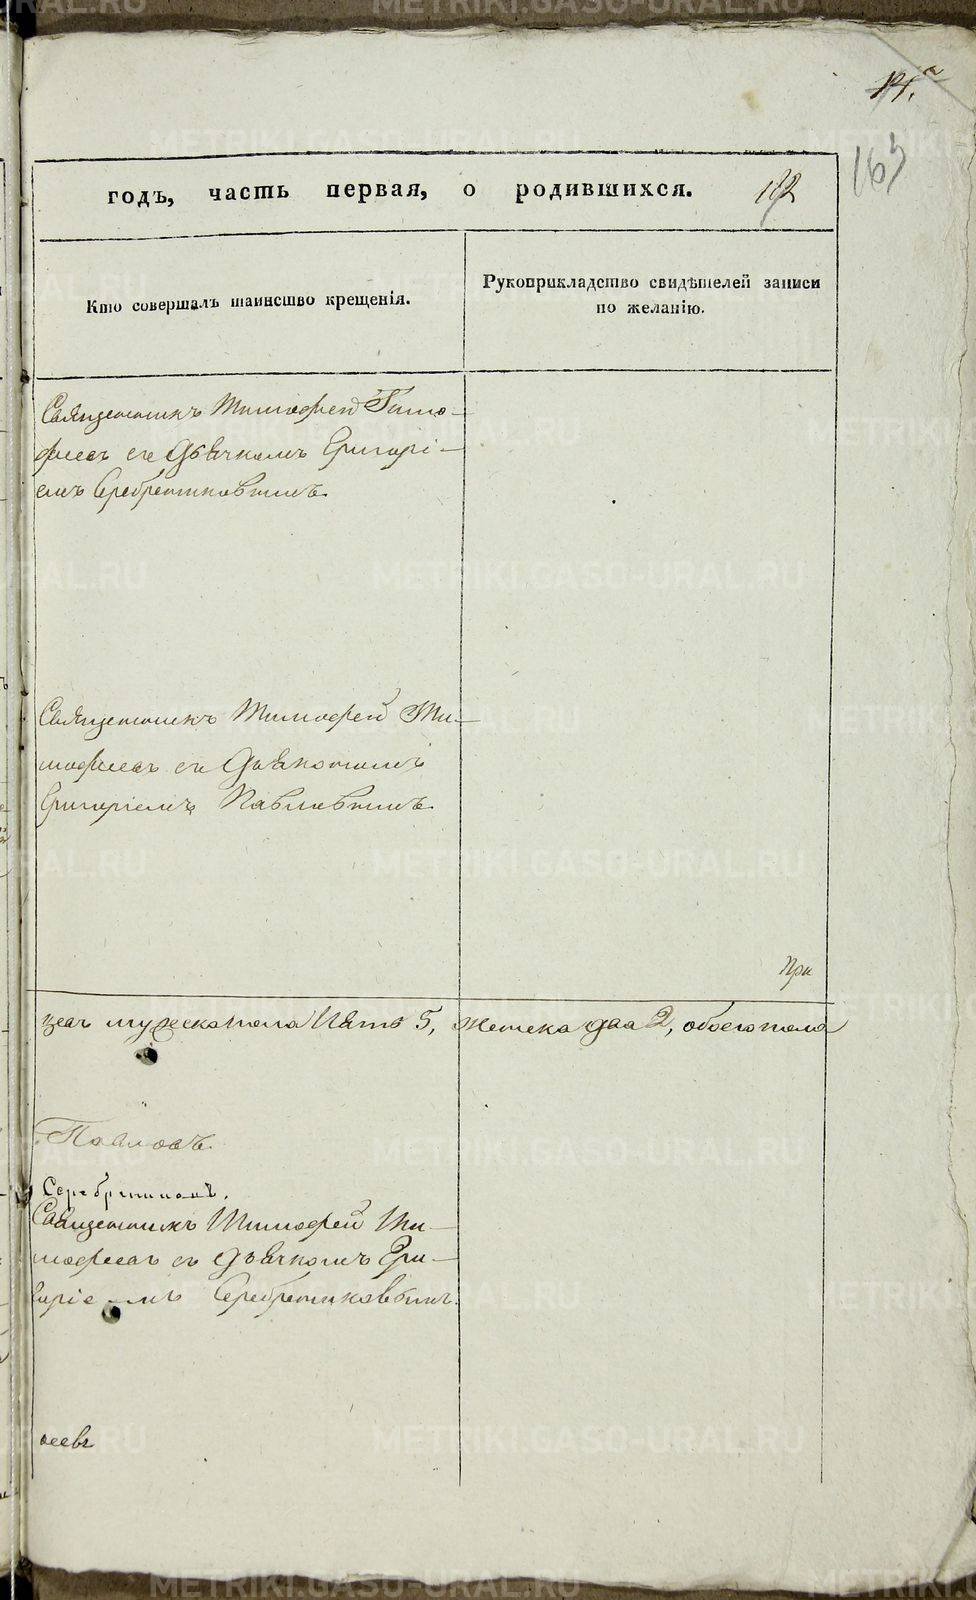 165
годъ, часть первая, о родившихся. 112
Кто совершалъ таинство крещенія.
Рукоприкладство свидѣтелей записи
по желанію.
Священникъ Тимофей Тимо-
феевъ съ Дьячкомъ Григорі-
емъ Серебрениковымъ.
Священникъ Тимофей Ти-
мофеевъ съ Діакономъ
Григоріемъ Павловымъ.
При
цевъ мужеска пола Пять 5, женска два 2, обоего пола
Павловъ
Серебрениковъ.
Священникъ Тимофей Ти-
мофеевъ съ дьячкомъ Гри-
горіемъ Серебрениковымъ.
оеевъ
METRIKI.GASO-URAL.RU